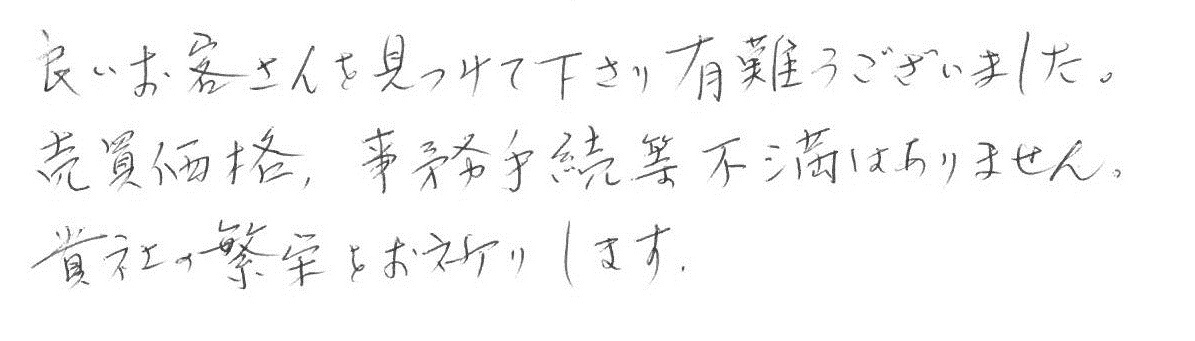 良いお客さんを見つけて下さり有難うございました。
売買価格,事務手続等不満はありません。
貴社の繁栄をお祈りします.